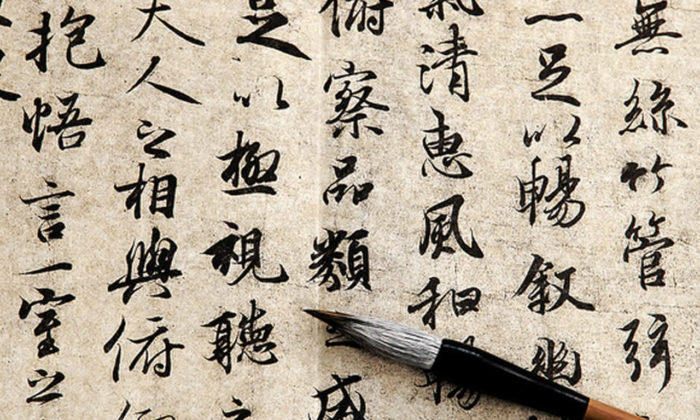 無絲竹管弦
足以暢叙幽
氣清惠風和暢
俯察品類之盛
足以極視聽之
夫人之相與俯仰
抱悟言一室之